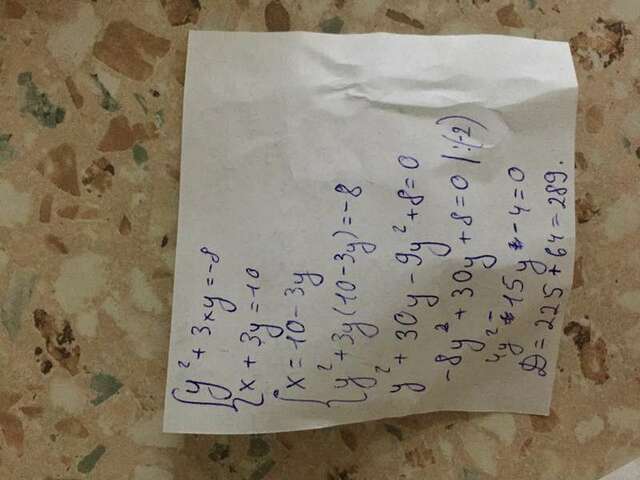 {y² + 3xy = -8
{x + 3y = 10
{x = 10 - 3y
{y² + 3y(10 - 3y) = -8
y² + 30y - 9y² + 8 = 0
-8y² + 30y + 8 = 0 | :(-2)
4y² - 15y - 4 = 0
D = 225 + 64 = 289.